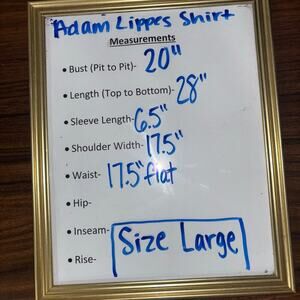 Adam Lippes Shirt
Measurements
• Bust (Pit to Pit)- 20"
• Length (Top to Bottom)- 28"
• Sleeve Length- 6.5"
• Shoulder Width- 17.5"
• Waist- 17.5" flat
• Hip-
• Inseam-
• Rise-
Size Large